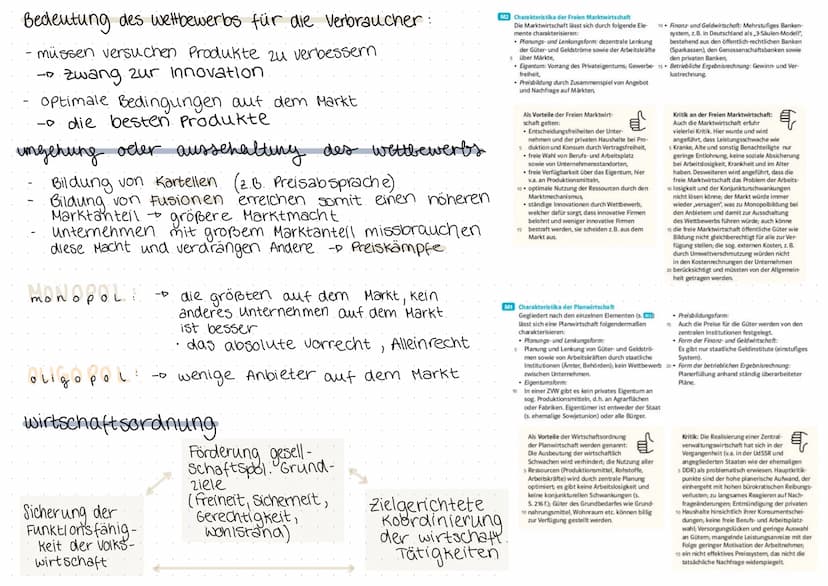 Bedeutung des Wettbewerbs für die Verbraucher:
- müssen versuchen Produkte zu verbessern
→ Zwang zur Innovation
- optimale Bedingungen auf dem Markt
→ die besten Produkte
umgehung oder ausschaltung des wettbewerbs
- Bildung von Kartellen (z.B. Preisabsprache)
- Bildung von Fusionen erreichen somit einen höheren
Marktanteil → größere Marktmacht
- unternehmen mit großem Marktanteil missbrauchen
diese Macht und verdrängen Andere → Preiskämpfe
MONOPOL:
monopol: → die größten auf dem Markt, kein
anderes Unternehmen auf dem Markt
ist besser
· das absolute vorrecht, Alleinrecht
OLIGOPOL: → wenige Anbieter auf dem Markt
wirtschaftsordnung
Förderung gesell-
schaftspol. Grund-
ziele
(Freiheit, Sicherheit,
Gerechtigkeit,
Wohlstand)
Sicherung der
Funktionsfähig-
keit der Volks-
wirtschaft
zielgerichtete
Koordinierung
der wirtschaft.
Tätigkeiten
M2 Charakteristika der Freien Marktwirtschaft
Die Marktwirtschaft lässt sich durch folgende Ele-
mente charakterisieren:
• Planungs- und Lenkungsform: dezentrale Lenkung
der Güter- und Geldströme sowie der Arbeitskräfte
5 über Märkte,
• Eigentum: Vorrang des Privateigentums; Gewerbe-
freiheit,
• Preisbildung durch Zusammenspiel von Angebot
und Nachfrage auf Märkten,
10 • Finanz- und Geldwirtschaft: Mehrstufiges Banken-
system, z.B. in Deutschland als „3-Säulen-Modell“,
bestehend aus den öffentlich-rechtlichen Banken
(Sparkassen), den Genossenschaftsbanken sowie
den privaten Banken,
15 • Betriebliche Ergebnisrechnung: Gewinn- und Ver-
lustrechnung.
Als Vorteile der Freien Marktwirt-
schaft gelten:
• Entscheidungsfreiheiten der Unter-
nehmen und der privaten Haushalte bei Pro-
5 duktion und Konsum durch Vertragsfreiheit,
• freie Wahl von Berufs- und Arbeitsplatz
sowie von Unternehmensstandorten,
• freie Verfügbarkeit über das Eigentum, hier
v.a. an Produktionsmitteln,
10 • optimale Nutzung der Ressourcen durch den
Marktmechanismus,
• ständige Innovationen durch Wettbewerb,
welcher dafür sorgt, dass innovative Firmen
belohnt und weniger innovative Firmen
15 bestraft werden, sie scheiden z.B. aus dem
Markt aus.
Kritik an der Freien Marktwirtschaft:
Auch die Marktwirtschaft erfuhr
vielerlei Kritik. Hier wurde und wird
angeführt, dass Leistungsschwache wie
5 Kranke, Alte und sonstig Benachteiligte nur
geringe Entlohnung, keine soziale Absicherung
bei Arbeitslosigkeit, Krankheit und im Alter
haben. Desweiteren wird angeführt, dass die
freie Marktwirtschaft das Problem der Arbeits-
10 losigkeit und der Konjunkturschwankungen
nicht lösen könne; der Markt würde immer
wieder „versagen“, was zu Monopolbildung bei
den Anbietern und damit zur Ausschaltung
des Wettbewerbs führen würde; auch könne
15 die freie Marktwirtschaft öffentliche Güter wie
Bildung nicht gleichberechtigt für alle zur Ver-
fügung stellen; die sog. externen Kosten, z. B.
durch Umweltverschmutzung würden nicht
in den Kostenrechnungen der Unternehmen
20 berücksichtigt und müssten von der Allgemein-
heit getragen werden.
M1 Charakteristika der Planwirtschaft
Gegliedert nach den einzelnen Elementen (s. M2)
lässt sich eine Planwirtschaft folgendermaßen
charakterisieren:
• Planungs- und Lenkungsform:
5 Planung und Lenkung von Güter- und Geldströ-
men sowie von Arbeitskräften durch staatliche
Institutionen (Ämter, Behörden); kein Wettbewerb
zwischen Unternehmen.
• Eigentumsform:
10 In einer ZVW gibt es kein privates Eigentum an
sog. Produktionsmitteln, d.h. an Agrarflächen
oder Fabriken. Eigentümer ist entweder der Staat
(s. ehemalige Sowjetunion) oder alle Bürger.
• Preisbildungsform:
15 Auch die Preise für die Güter werden von den
zentralen Institutionen festgelegt.
• Form der Finanz- und Geldwirtschaft:
Es gibt nur staatliche Geldinstitute (einstufiges
System).
20 • Form der betrieblichen Ergebnisrechnung:
Planerfüllung anhand ständig überarbeiteter
Pläne.
Als Vorteile der Wirtschaftsordnung
der Planwirtschaft werden genannt:
Die Ausbeutung der wirtschaftlich
Schwachen wird verhindert; die Nutzung aller
5 Ressourcen (Produktionsmittel, Rohstoffe,
Arbeitskräfte) wird durch zentrale Planung
optimiert; es gibt keine Arbeitslosigkeit und
keine konjunkturellen Schwankungen (s.
S. 216 f.); Güter des Grundbedarfes wie Grund-
10 nahrungsmittel, Wohnraum etc. können billig
zur Verfügung gestellt werden.
Kritik: Die Realisierung einer Zentral-
verwaltungswirtschaft hat sich in der
Vergangenheit (v.a. in der UdSSR und
angegliederten Staaten wie der ehemaligen
5 DDR) als problematisch erwiesen. Hauptkritik-
punkte sind der hohe planerische Aufwand, der
einhergeht mit hohen bürokratischen Reibungs-
verlusten; zu langsames Reagieren auf Nach-
frageänderungen; Entmündigung der privaten
10 Haushalte hinsichtlich ihrer Konsumentschei-
dungen; keine freie Berufs- und Arbeitsplatz-
wahl; Versorgungslücken und geringe Auswahl
an Gütern; mangelnde Leistungsanreize mit der
Folge geringer Motivation der Arbeitnehmer;
15 ein nicht effektives Preissystem, das nicht die
tatsächliche Nachfrage widerspiegelt.